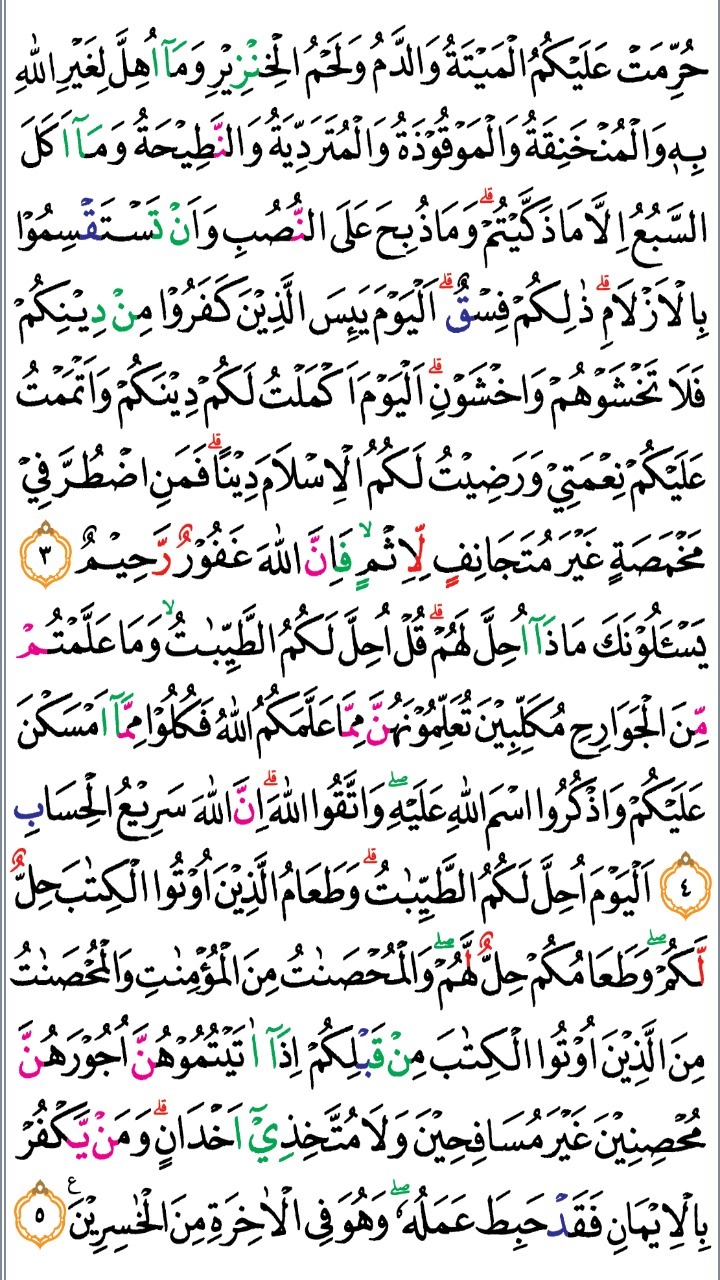 حُرِّمَتْ عَلَيْكُمُ الْمَيْتَةُ وَالدَّمُ وَلَحْمُ الْخِنْزِيْرِ وَمَاۤ اُهِلَّ لِغَيْرِ اللّٰهِ
بِهٖ وَالْمُنْخَنِقَةُ وَالْمَوْقُوْذَةُ وَالْمُتَرَدِّيَةُ وَالنَّطِيْحَةُ وَمَاۤ اَكَلَ
السَّبُعُ اِلَّا مَا ذَكَّيْتُمْ ۗ وَمَا ذُبِحَ عَلَى النُّصُبِ وَاَنْ تَسْتَقْسِمُوْا
بِالْاَزْلَامِ ۗ ذٰلِكُمْ فِسْقٌ ۗ اَلْيَوْمَ يَىِٕسَ الَّذِيْنَ كَفَرُوْا مِنْ دِيْنِكُمْ
فَلَا تَخْشَوْهُمْ وَاخْشَوْنِ ۗ اَلْيَوْمَ اَكْمَلْتُ لَكُمْ دِيْنَكُمْ وَاَتْمَمْتُ
عَلَيْكُمْ نِعْمَتِيْ وَرَضِيْتُ لَكُمُ الْاِسْلَامَ دِيْنًا ۗ فَمَنِ اضْطُرَّ فِيْ
مَخْمَصَةٍ غَيْرَ مُتَجَانِفٍ لِّاِثْمٍ ۙ فَاِنَّ اللّٰهَ غَفُوْرٌ رَّحِيْمٌ ٣
يَسْـَٔلُوْنَكَ مَاذَاۤ اُحِلَّ لَهُمْ ۗ قُلْ اُحِلَّ لَكُمُ الطَّيِّبٰتُ ۙ وَمَا عَلَّمْتُمْ
مِّنَ الْجَوَارِحِ مُكَلِّبِيْنَ تُعَلِّمُوْنَهُنَّ مِمَّا عَلَّمَكُمُ اللّٰهُ فَكُلُوْا مِمَّاۤ اَمْسَكْنَ
عَلَيْكُمْ وَاذْكُرُوا اسْمَ اللّٰهِ عَلَيْهِ ۖ وَاتَّقُوا اللّٰهَ ۗ اِنَّ اللّٰهَ سَرِيْعُ الْحِسَابِ
٤ اَلْيَوْمَ اُحِلَّ لَكُمُ الطَّيِّبٰتُ ۗ وَطَعَامُ الَّذِيْنَ اُوْتُوا الْكِتٰبَ حِلٌّ
لَّكُمْ ۖ وَطَعَامُكُمْ حِلٌّ لَّهُمْ ۖ وَالْمُحْصَنٰتُ مِنَ الْمُؤْمِنٰتِ وَالْمُحْصَنٰتُ
مِنَ الَّذِيْنَ اُوْتُوا الْكِتٰبَ مِنْ قَبْلِكُمْ اِذَاۤ اٰتَيْتُمُوْهُنَّ اُجُوْرَهُنَّ
مُحْصِنِيْنَ غَيْرَ مُسَافِحِيْنَ وَلَا مُتَّخِذِيْۤ اَخْدَانٍ ۗ وَمَنْ يَّكْفُرْ
بِالْاِيْمَانِ فَقَدْ حَبِطَ عَمَلُهٗ ۖ وَهُوَ فِى الْاٰخِرَةِ مِنَ الْخٰسِرِيْنَ ع ٥